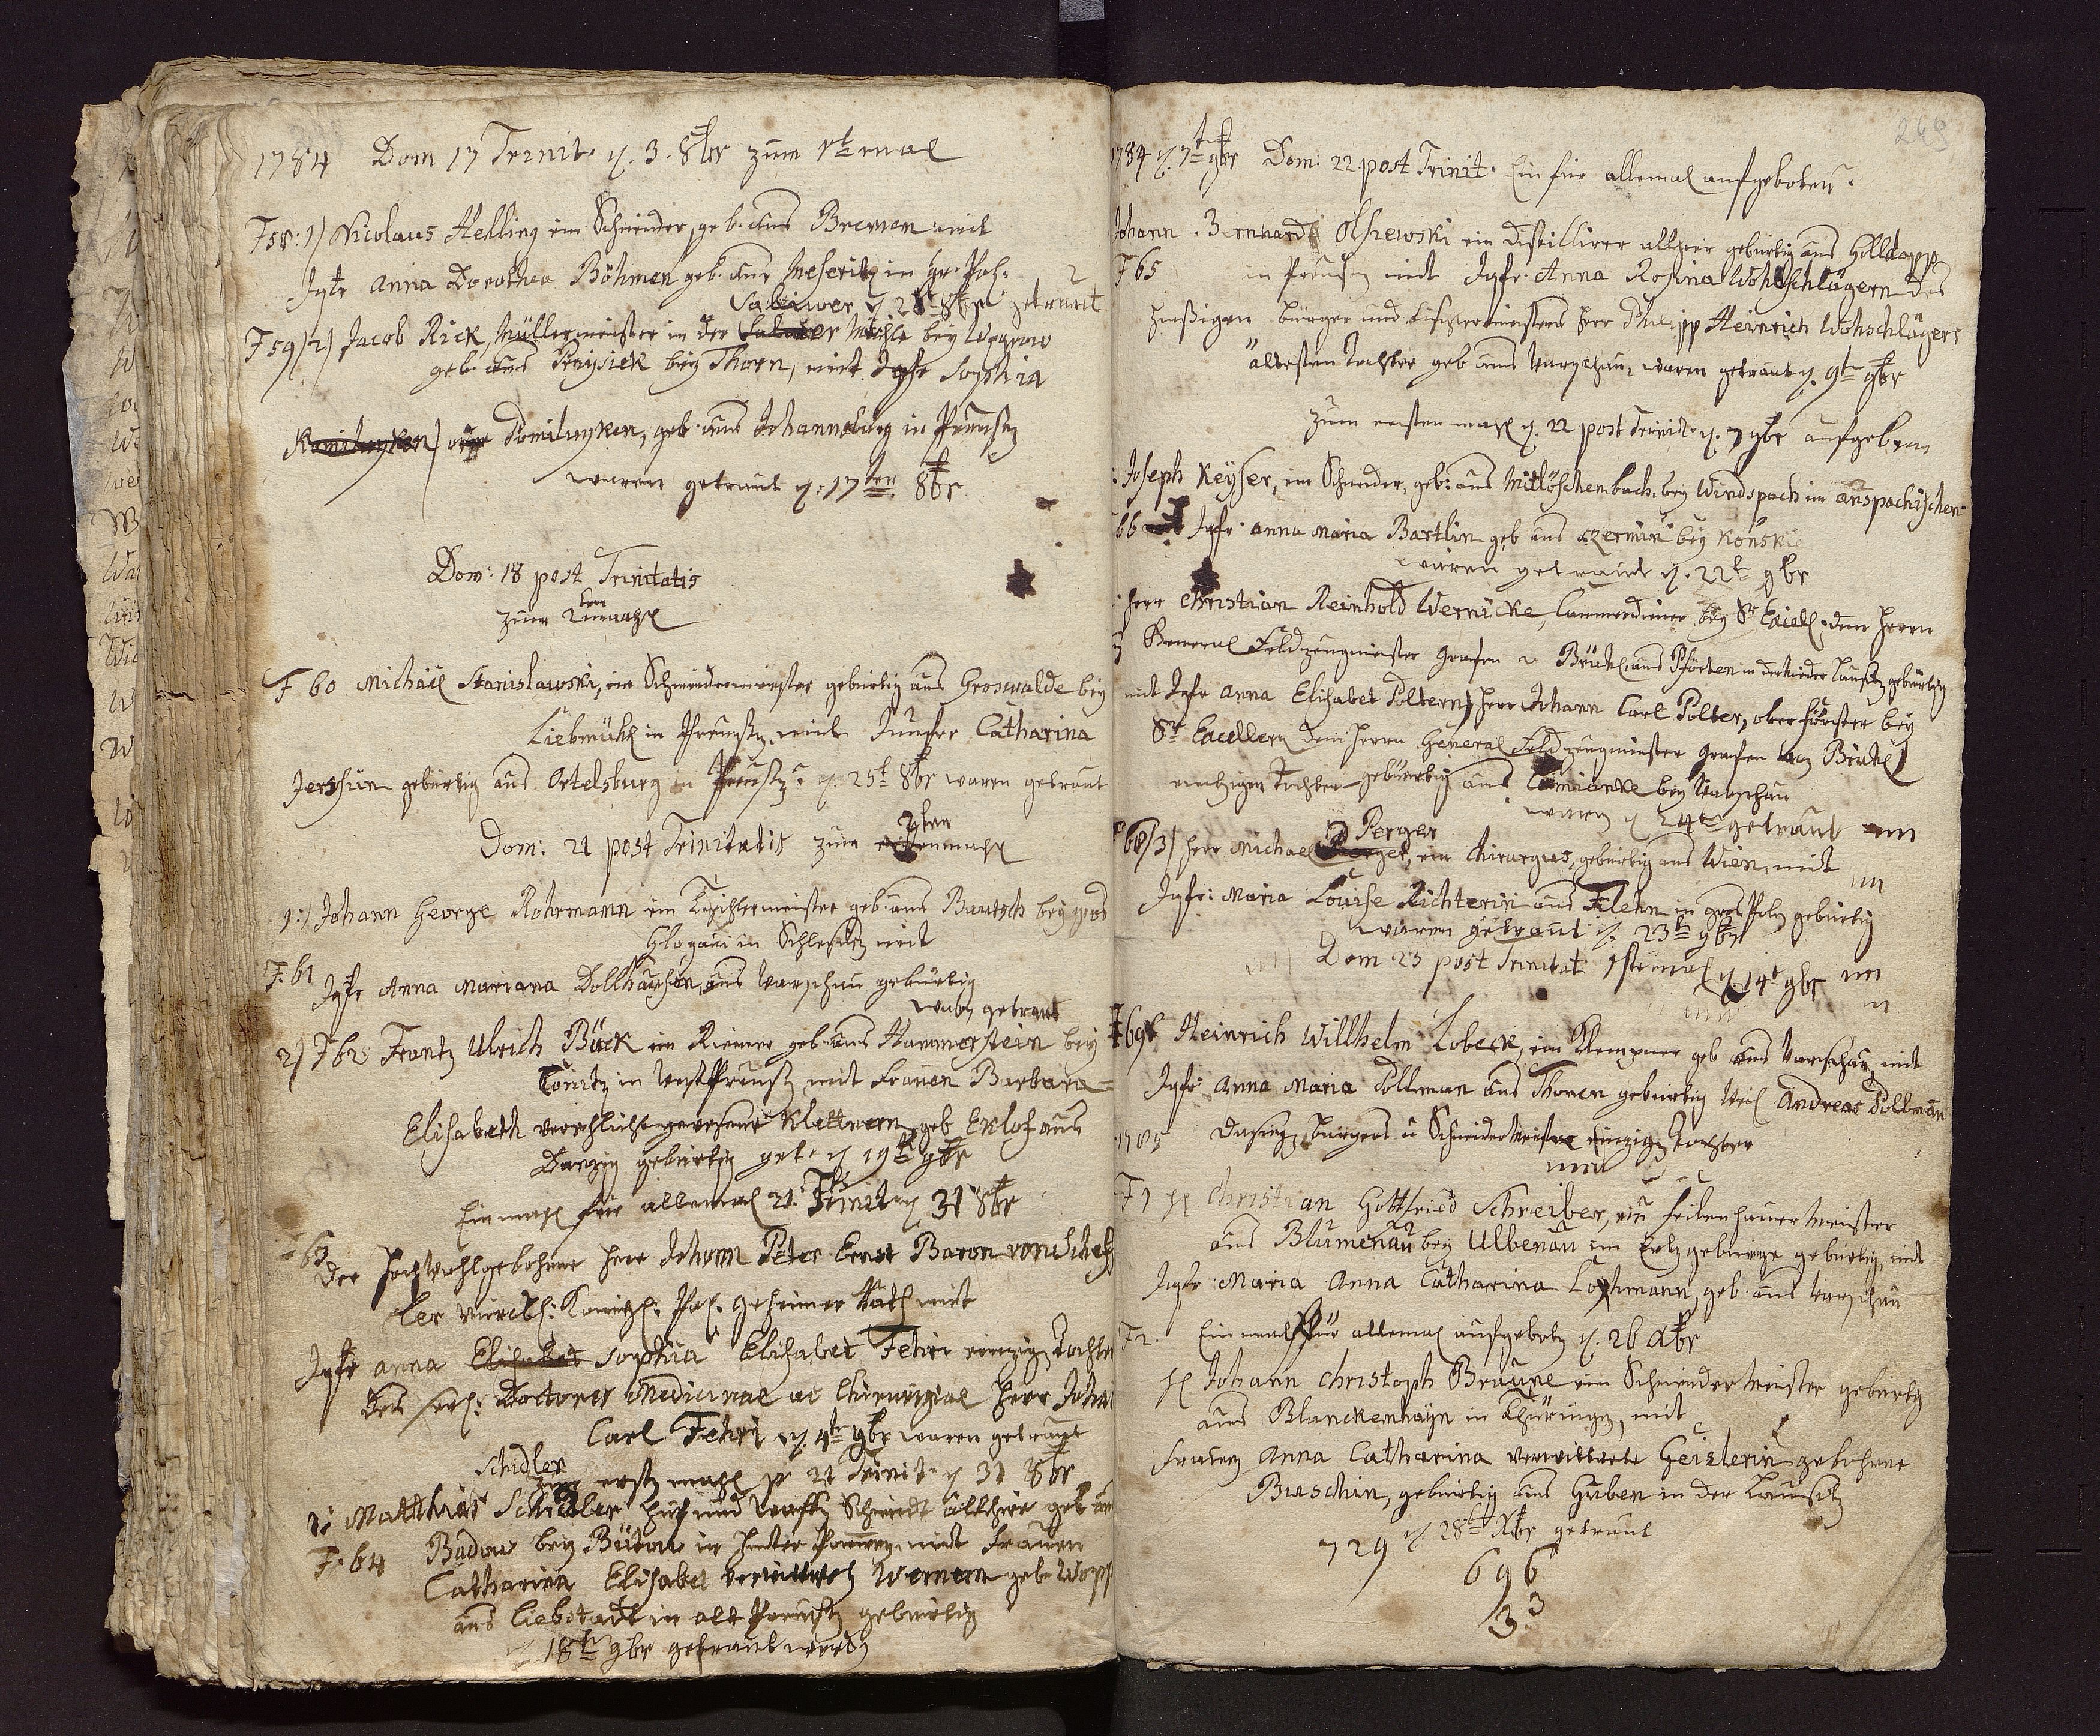 1784 Dom 17 Trinit. d. 3. 8br zum 1t mal
F58. 1) Nicolaus Helling ein Schneider, geb. aus Bremen mit
Jgfr Anna Dorothea Böhmen geb. aus Meseritz in Gr. Pol.
d. 28t 8br getraut
F59/2) Jacob Rick, Müllermeister in der Mühle bey
geb. aus bey Thorn, mit Jgfr Sophia
geb. aus Johannsburg in Preussen
waren getraut d. 17ten 8br
Dom: 18 post Trinitatis
zum 2ten mahl
F 60 Michael Stanislawski, ein Schneidermeister gebürtig aus Groswalde bey
Liebmühl in Preussen mit Junfer Catharina
gebürtig aus Ortelsburg in Preussen d. 25t 8br waren getraut
Dom: 21 post Trinitatis zum 2ten mahl
1:) Johann George Rohrmann ein Tischlermeister geb. aus bey gros
Glogau in Schlesien mit
F. 61 Jgfr Anna Mariana Dollhausen, aus Warschau gebürtig
getraut
2) F62 Frantz Ulrich Bück ein Riemer geb. aus Hammerstein bey
Conitz in WestPreussen mit Frauen Barbara
Elisabeth verehlicht gewesene geb Exlof aus
Danzig gebürtig get. d 19t 9br
Ein mahl für allemal 21. Trinit d 31 8br
63 Der HochWohlgebohrne Herr Johann Peter Ernst Baron von Schef
ler Würckl: Königl: Pol. Geheimer Rath mit
Jgfr Anna Elisabet Sophia Elisabet Fehri einzigen Tochter
des seel: Doctoris Medicinae ac Chirurgiae Herr Johan
Carl Fehri d. 4t 9br waren getraut
Schidler
zum ersten mahl p 21 Trinit d 31 8br
1: Matthias Schidler Huf und Waffen Schmidt allhier geb aus
F. 64 Budow bey Bütow in Hinter Pommern mit Frauen
Catharina Elisabet verwittwete Wernern geb.
aus Liebstadt in alt Preussen gebürtig
d 18t 9br getraut worden
249
1784 d. 7t 9br Dom: 22 post Trinit. Ein für allemal aufgeboten.
Johann Bernhard Olszewski ein Distillirer allhier gebürtig aus Golldapp
F 65 in Preussen mit Jgfr. Anna Rosina Wohlschlägern des
hiesigen Bürger und Tischlermeisters Herr Philipp Heinrich Wohlschlägers
ältesten Tochter geb aus Warschau, waren getraut d. 9t 9br
zum ersten mahl d. 22 post Trinit d. 7 9br aufgeboten
: Joseph Keyser, ein Schneider, geb: aus Mitlöschenbach bey Windspach im anspachischen
66 mit Jgfr. Anna Maria Bartlin geb aus bey Końskie
waren getraut d. 22t 9br
: Herr Christian Reinhold Wernicke, Cammerdiener bey Sr Excell. dem Herrn
General Feldzeugmeister Grafen v Brühl, aus Pförten in der Nieder Lausitz gebürtig
mit Jgfr Anna Elisabet Poltern, Herr Johann Carl Polter, Oberförster bey
Sr Excellenz dem Herrn General Feldzeugmeister Grafen von Brühl
einzigen Tochter gebürtig aus bey Warschau
waren d 24t getraut
Perger
F68/3) Herr Michael ein Chirurgus, gebürtig aus Wien, mit
Jgfr: Maria Louise Richterin aus Filehn in gros Polen gebürtig
waren getraut d. 23t 9br
Dom 23 post Trinitat. 1ste mal d. 14t 9br
F69 Heinrich Willhelm Lobeck, ein Klempner geb aus Warschau, mit
Jgfr: Anna Maria Pollman aus Thoren gebürtig Andreas Pollman
1785 Bürgers u Schneider Meister einzigen Tochter
F1 H Christian Gottfried Schreiber, ein Feilenhauer Meister
aus Blumenau bey Ulbenau im Ertzgebürge gebürtig, mit
Jgfr: Maria Anna Catharina Lochmann, geb. aus Warschau
F2. Ein mal für allemal aufgeboten d. 26 Xbr
H Johann Christoph Braune ein Schneider Meister gebürtig
aus Blanckenhayn in Thüringen, mit
Frauen Anna Catharina verwittwete Geislerin gebohrne
Buschin, gebürtig aus Guben in der Lausitz
d. 28t Xbr getraut
729
696
33